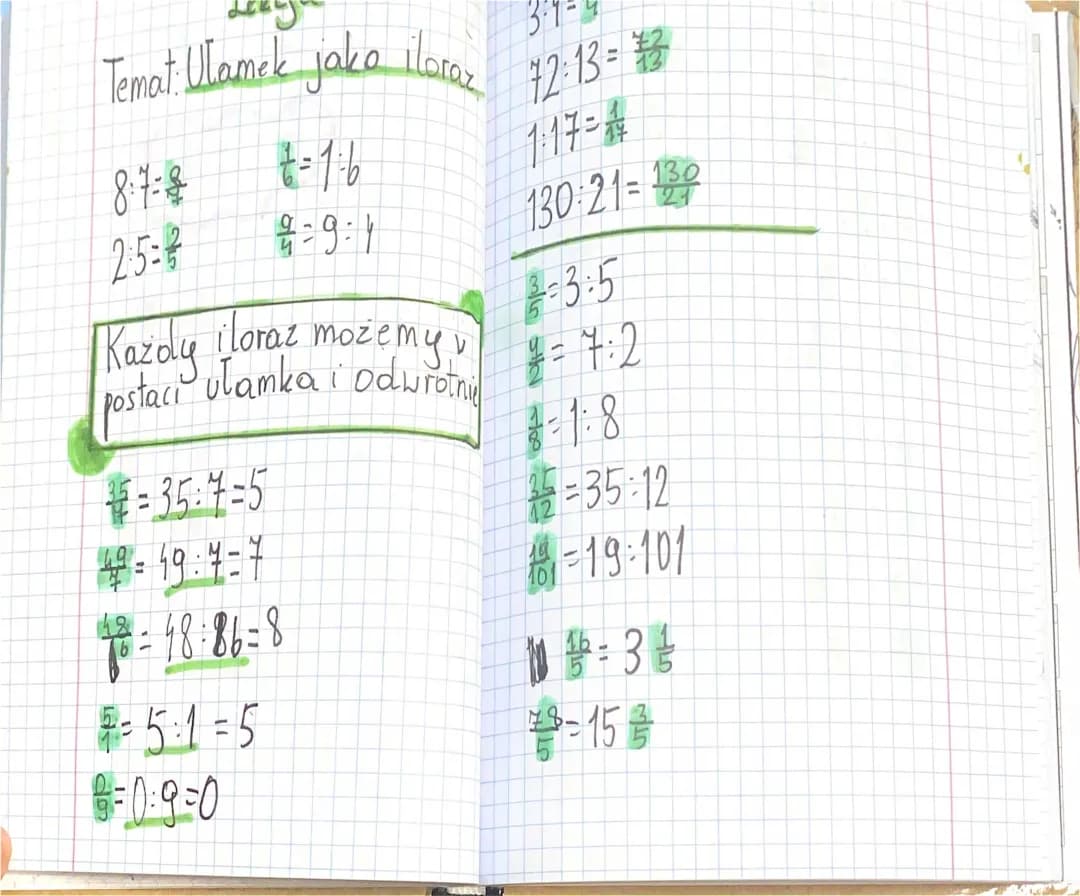 Lekcja
Temat: Ułamek jako iloraz
8:7=8/7
1/6=1:6
2:5=2/5
9/4=9:4
Każdy iloraz możemy v
postaci ułamka i odwrotnie
35/7=35:7=5
49/7=49:7=7
48/6=48:6=8
5/1=5:1=5
0/9=0:9=0
72:13=72/13
1:17=1/17
130:21=130/21
3/5=3:5
=7:2
1/8=1:8
35/12=35:12
19/101=19:101
16/5=3 1/5
78/5=15 3/5